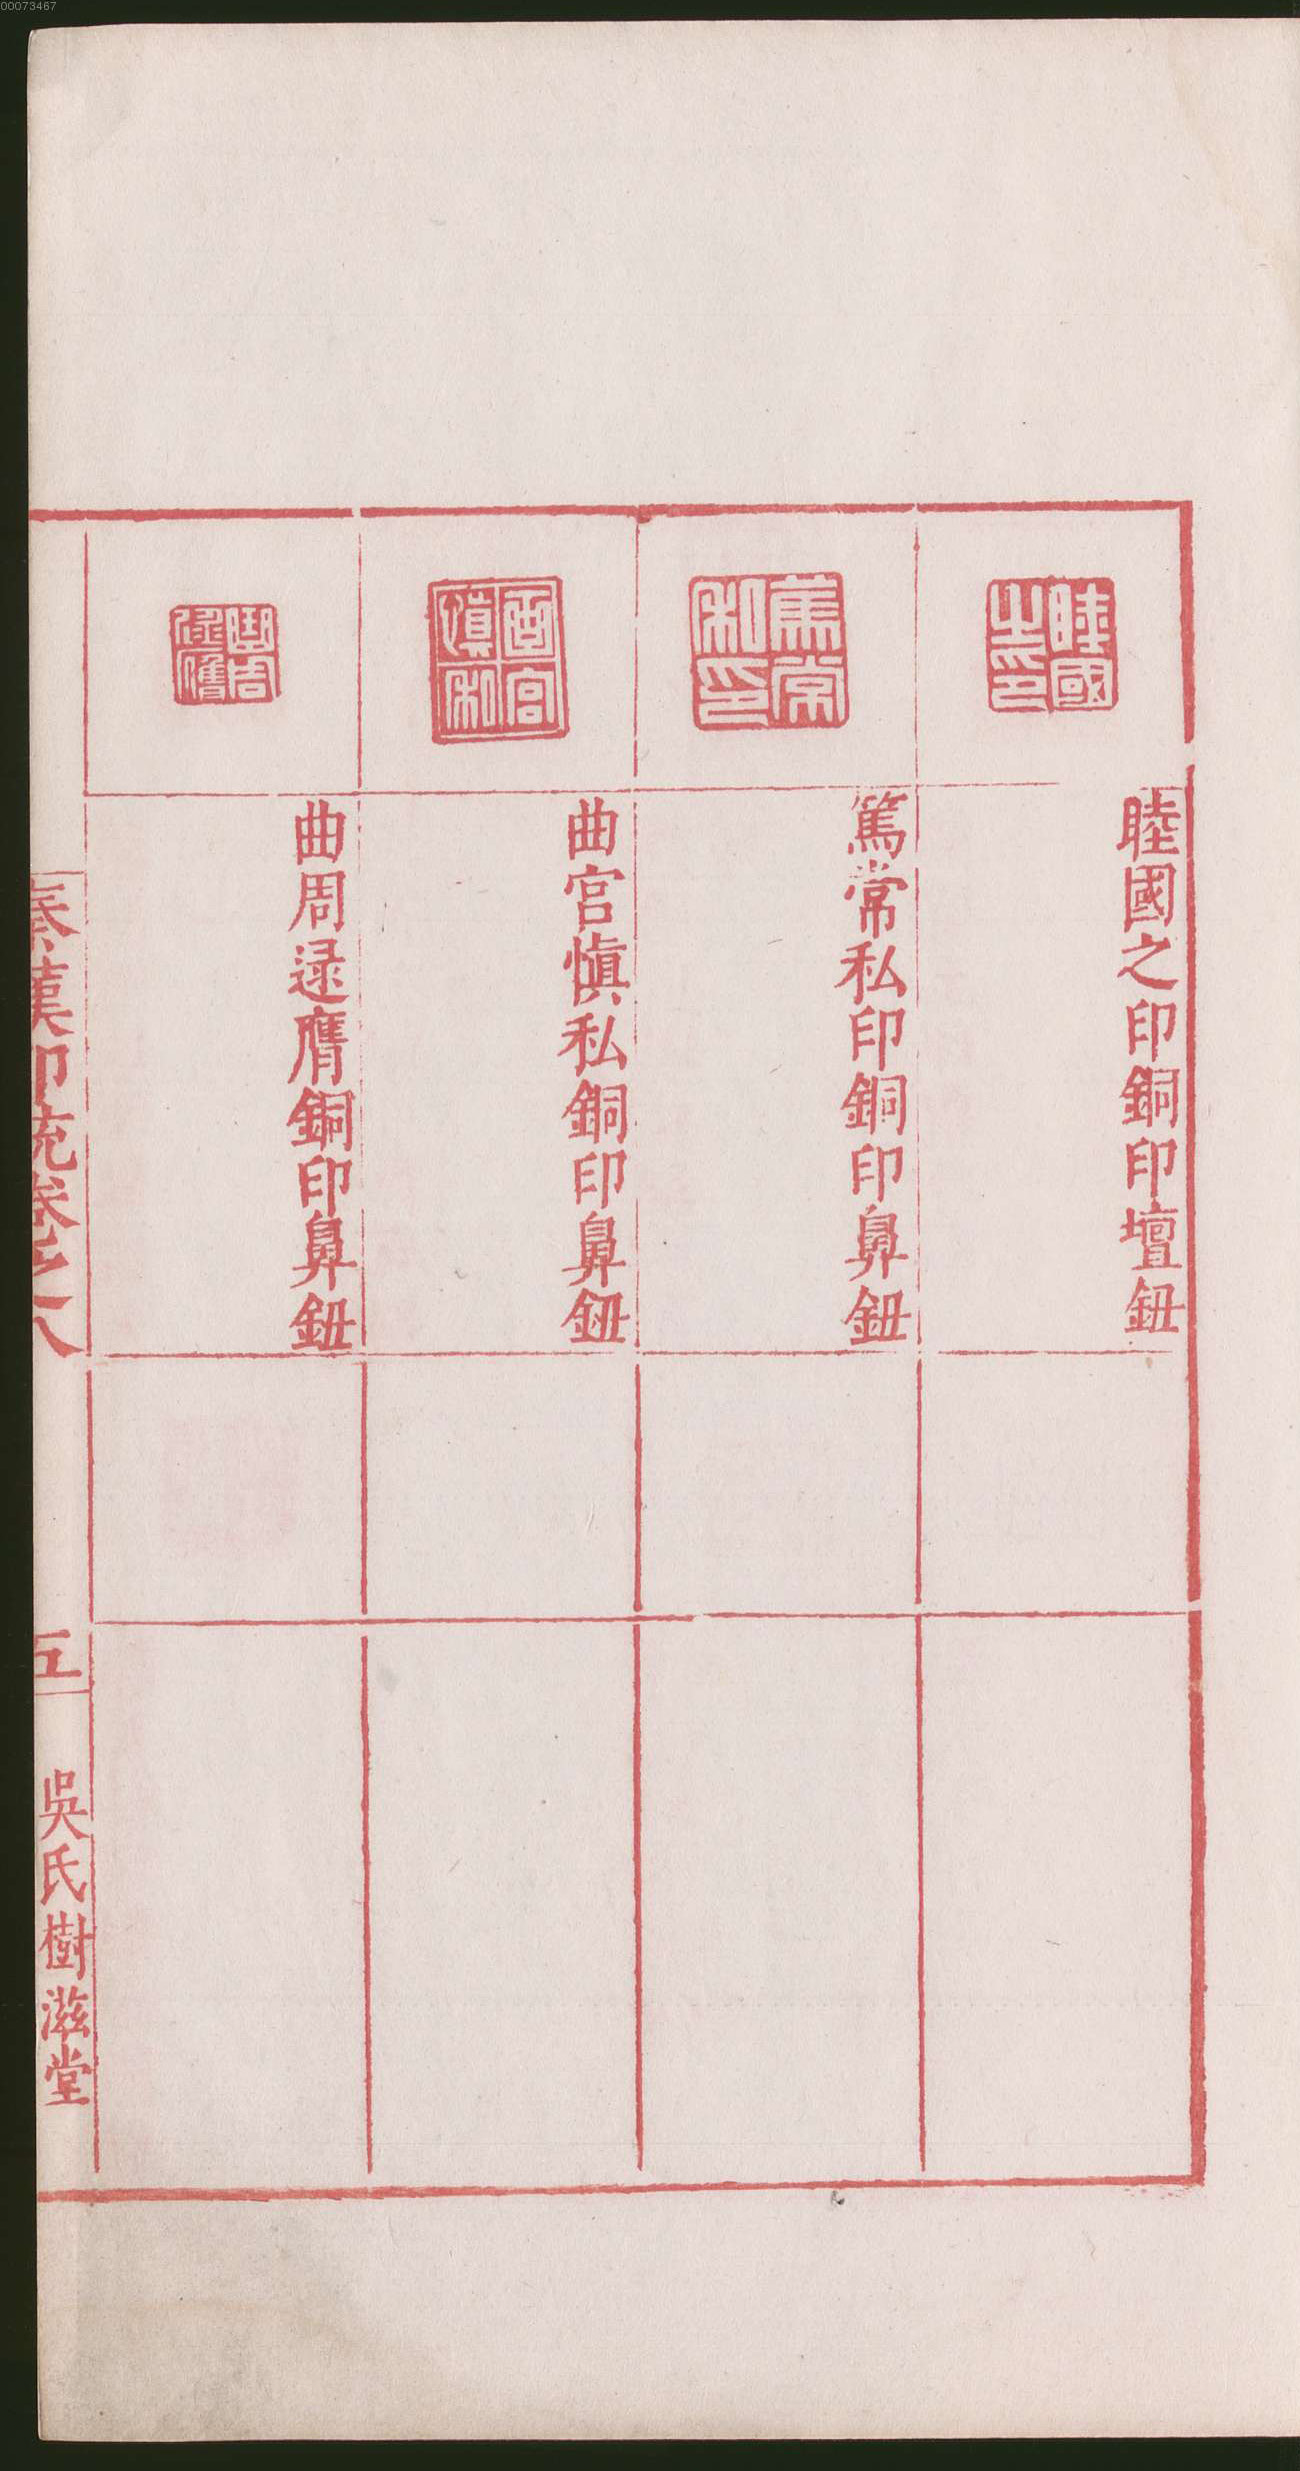 00073467
睦國之印
睦國之印銅印壇鈕
篤常私印
篤常私印銅印鼻鈕
曲宫慎私
曲宫慎私銅印鼻鈕
曲周逯鴈
曲周逯鴈銅印鼻鈕
秦漢印統卷之八
五
吳氏樹滋堂